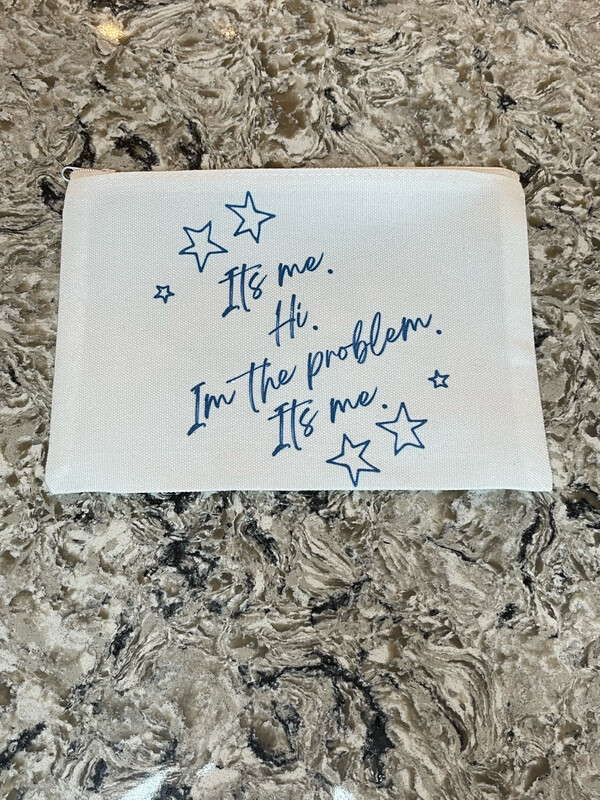 Its me.
Hi.
Im the problem.
Its me.